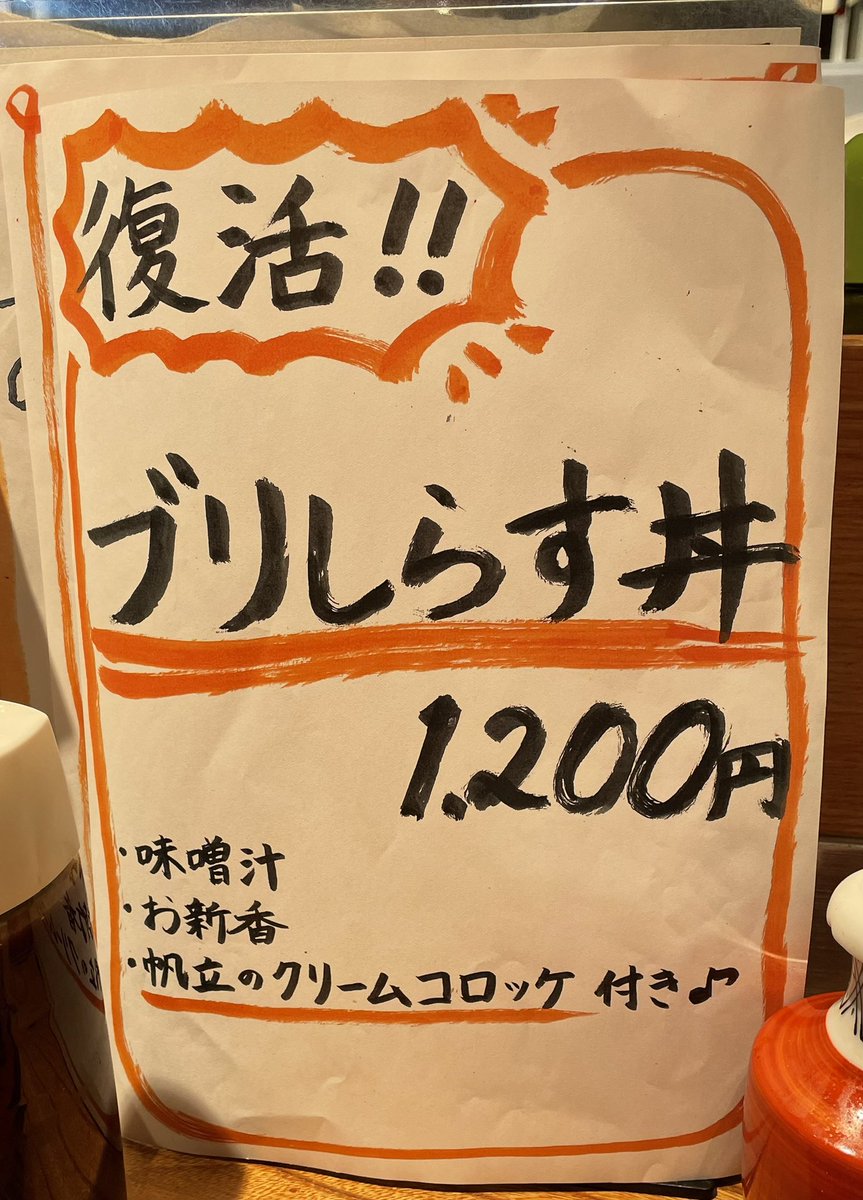 復活!!
ブリしらす丼
1.200円
・味噌汁
・お新香
・帆立のクリームコロッケ 付き♪